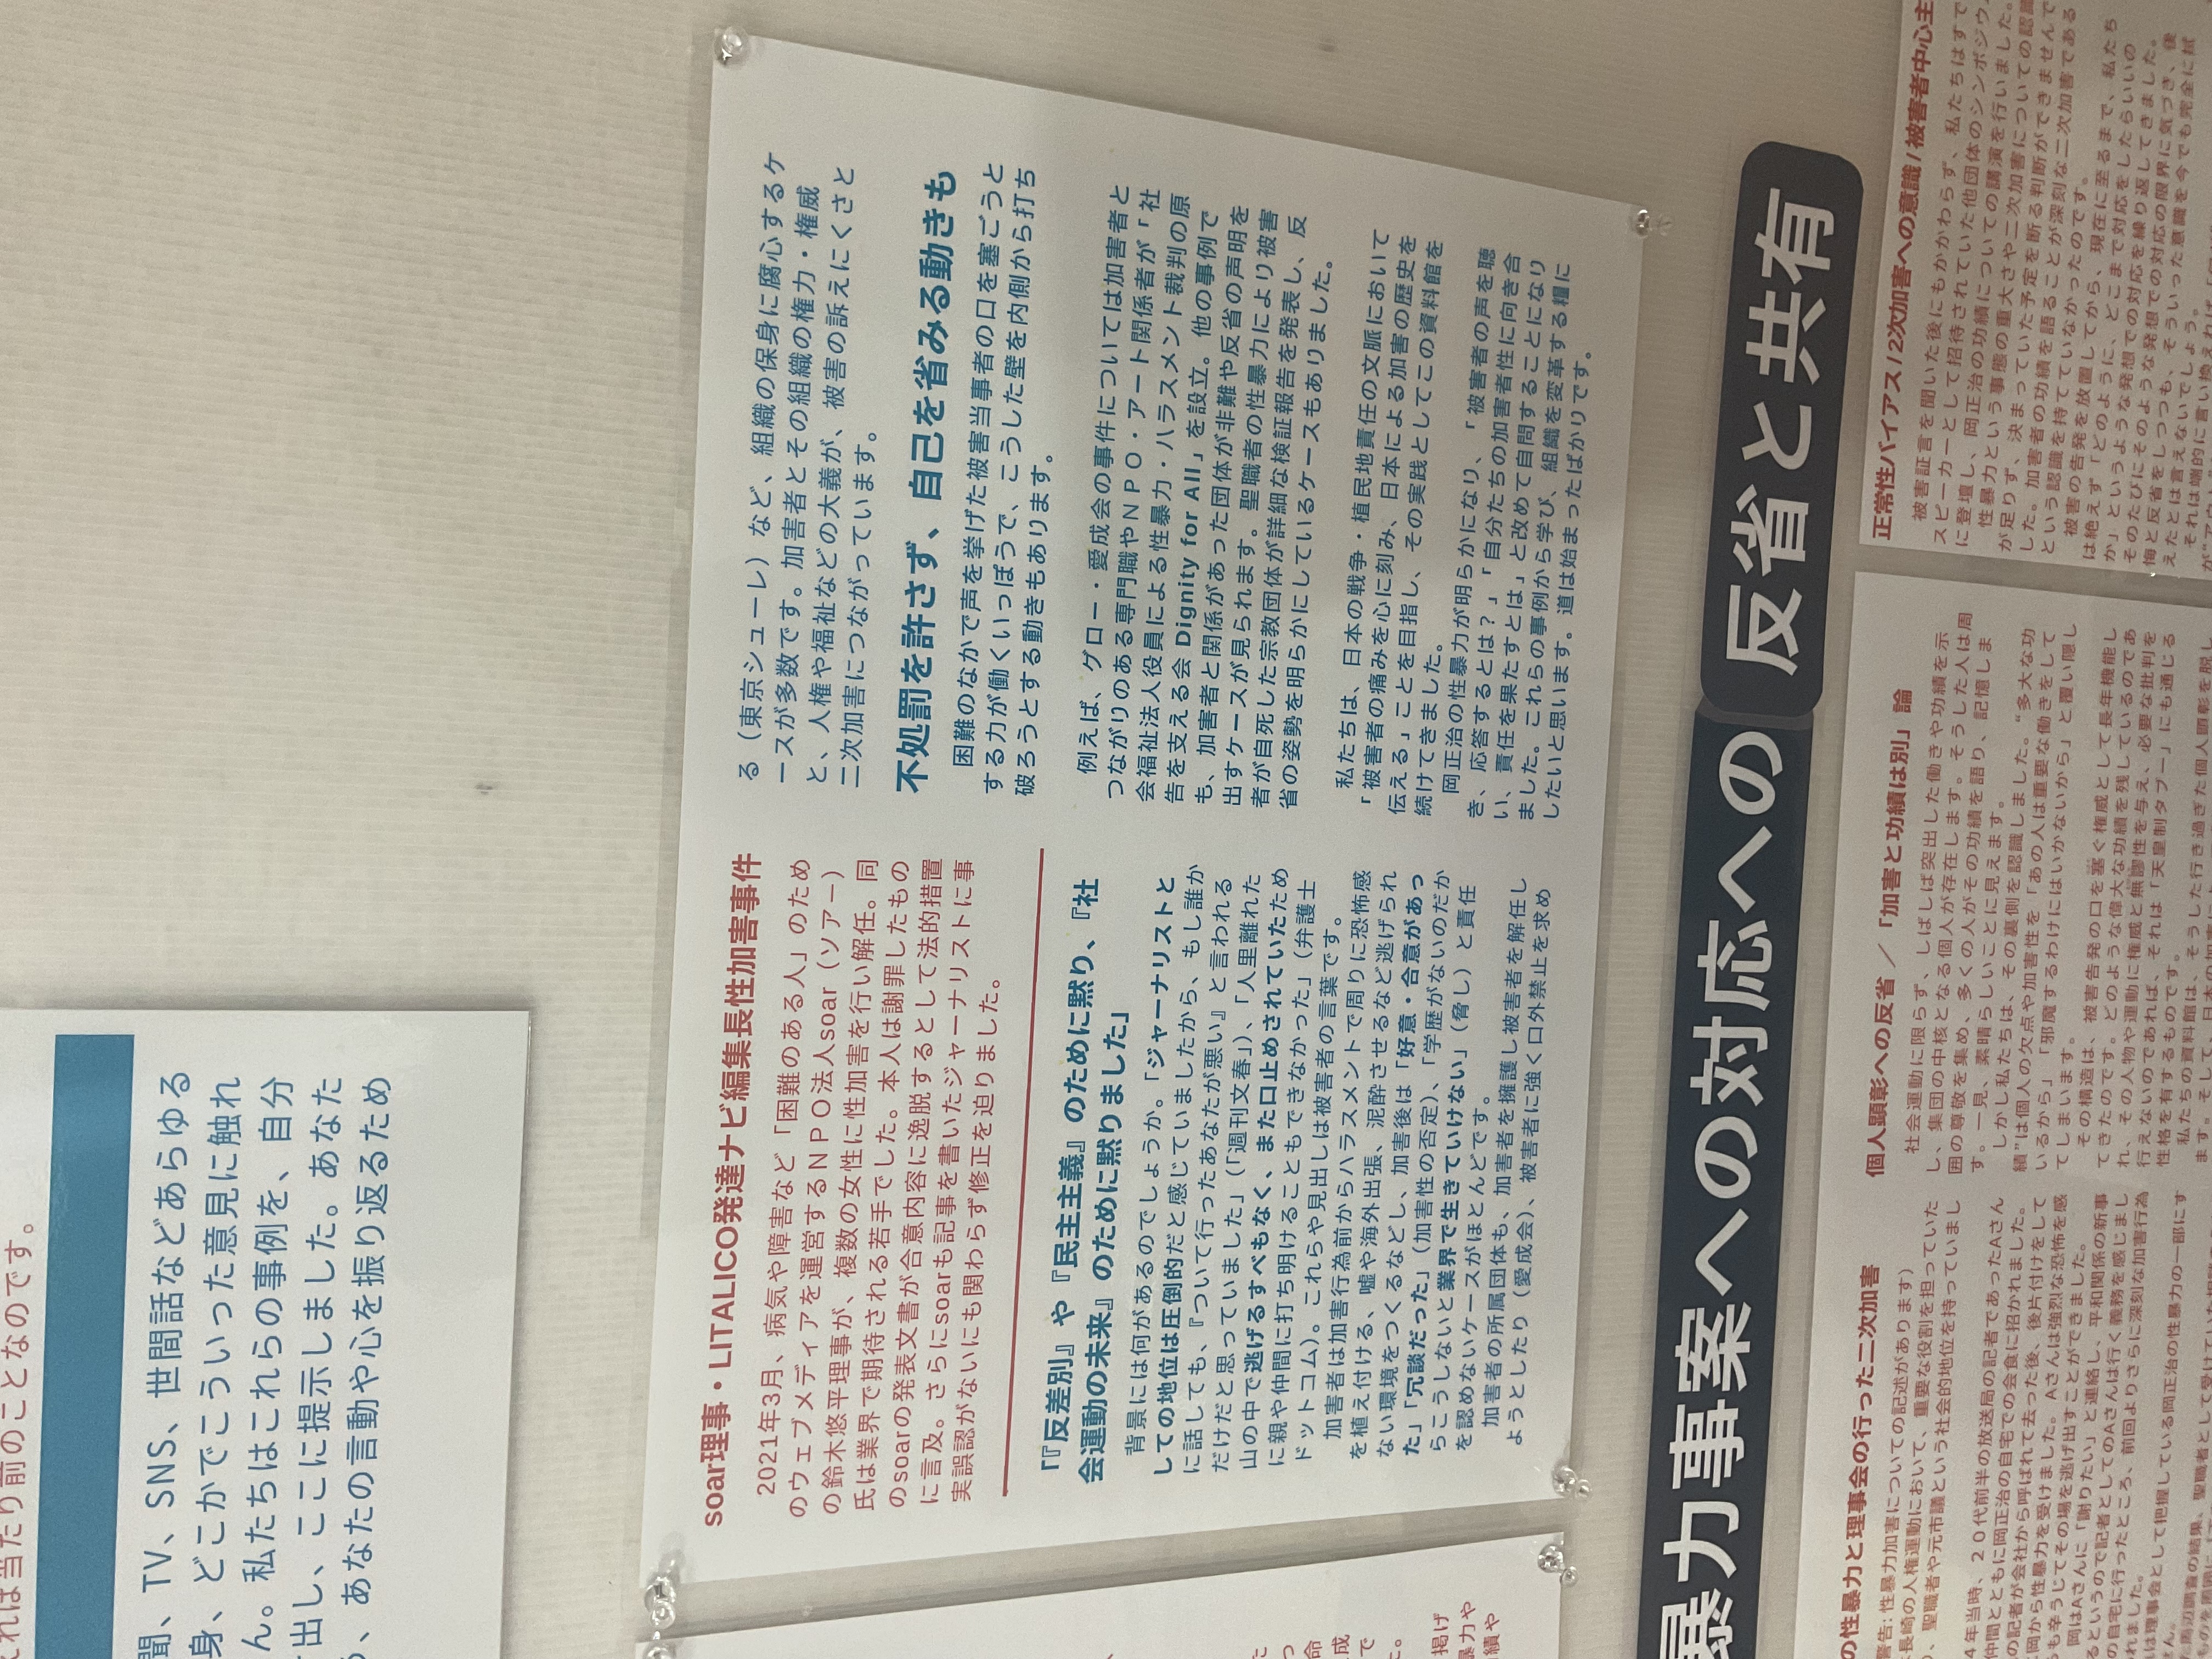 これは当たり前のことなのです。
聞、TV、SNS、世間話などあらゆる
身、どこかでこういった意見に触れ
ん。私たちはこれらの事例を、自分
出し、ここに提示しました。あなた
、あなたの言動や心を振り返るため
soar理事・LITALICO発達ナビ編集長性加害事件
2021年3月、病気や障害など「困難のある人」のため
のウェブメディアを運営するNPO法人soar（ソアー）
の鈴木悠平理事が、複数の女性に性加害を行い解任。同
氏は業界で期待される若手でした。本人は謝罪したもの
のsoarの発表文書が合意内容に逸脱するとして法的措置
に言及。さらにsoarも記事を書いたジャーナリストに事
実誤認がないにも関わらず修正を迫りました。
「『反差別』や『民主主義』のために黙り、『社
会運動の未来』のために黙りました」
背景には何があるのでしょうか。「ジャーナリストと
しての地位は圧倒的だと感じていましたから、もし誰か
に話しても、『ついて行ったあなたが悪い』と言われる
だけだと思っていました」（「週刊文春」）、「人里離れた
山の中で逃げるすべもなく、また口止めされていたため
に親や仲間に打ち明けることもできなかった」（弁護士
ドットコム）。これらや見出しは被害者の言葉です。
加害者は加害行為前からハラスメントで周りに恐怖感
を植え付ける、嘘や海外出張、泥酔させるなど逃げられ
ない環境をつくるなどし、加害後は「好意・合意があっ
た」「冗談だった」（加害性の否定）、「学歴がないのだか
らこうしないと業界で生きていけない」（脅し）と責任
を認めないケースがほとんどです。
加害者の所属団体も、加害者を擁護し被害者を解任し
ようとしたり（愛成会）、被害者に強く口外禁止を求め
る（東京シューレ）など、組織の保身に腐心するケ
ースが多数です。加害者とその組織の権力・権威
と、人権や福祉などの大義が、被害の訴えにくさと
二次加害につながっています。
不処罰を許さず、自己を省みる動きも
困難のなかで声を挙げた被害当事者の口を塞ごうと
する力が働くいっぽうで、こうした壁を内側から打ち
破ろうとする動きもあります。
例えば、グロー・愛成会の事件については加害者と
つながりのある専門職やNPO・アート関係者が「社
会福祉法人役員による性暴力・ハラスメント裁判の原
告を支える会 Dignity for All」を設立。他の事例で
も、加害者と関係があった団体が非難や反省の声明を
出すケースが見られます。聖職者の性暴力により被害
者が自死した宗教団体が詳細な検証報告を発表し、反
省の姿勢を明らかにしているケースもありました。
私たちは、日本の戦争・植民地責任の文脈において
「被害者の痛みを心に刻み、日本による加害の歴史を
伝える」ことを目指し、その実践としてこの資料館を
続けてきました。
岡正治の性暴力が明らかになり、「被害者の声を聴
き、応答するとは？」「自分たちの加害者性に向き合
い、責任を果たすとは」と改めて自問することになり
ました。これらの事例から学び、組織を変革する糧に
したいと思います。道は始まったばかりです。
暴力事案への対応への 反省と共有
の性暴力と理事会の行った二次加害
警告：性暴力加害についての記述があります）
長崎の人権運動において、重要な役割を担っていた
、聖職者や元市議という社会的地位を持っていまし
4年当時、20代前半の放送局の記者であったAさん
仲間とともに岡正治の自宅での会食に招かれました。
の記者が会社から呼ばれて去った後、後片付けをして
岡から性暴力を受けました。Aさんは強烈な恐怖を感
も辛うじてその場を逃げ出すことができました。
岡はAさんに「謝りたい」と連絡し、平和関係の新事
るというので記者としてのAさんは行く義務を感じまし
の自宅に行ったところ、前回よりさらに深刻な加害行為
れました。
は理事会として把握している岡正治の性暴力の一部にす
せん。
個人顕彰への反省 ／ 「加害と功績は別」論
社会運動に限らず、しばしば突出した働きや功績を示
し、集団の中核となる個人が存在します。そうした人は周
囲の尊敬を集め、多くの人がその功績を語り、記憶しま
す。一見、素晴らしいことに見えます。
しかし私たちは、その裏側を認識しました。“多大な功
績”は個人の欠点や加害性を「あの人は重要な働きをして
いるから」「邪魔するわけにはいかないから」と覆い隠し
てしまいます。
その構造は、被害告発の口を塞ぐ権威として長年機能し
てきたのです。どのような偉大な功績を残しているのであ
れ、その人物や運動に権威と無謬性を与え、必要な批判を
行えないのであれば、それは「天皇制タブー」にも通じる
性格を有するものです。
私たちの資料館は、そうした行き過ぎた個人顕彰を脱し
正常性バイアス / 2次加害への意識 / 被害者中心主
被害証言を聞いた後にもかかわらず、私たちはすで
スピーカーとして招待されていた他団体のシンポジウム
に登壇し、岡正治の功績についての講演を行いました。
性暴力という事態の重大さや二次加害についての認識
が足りず、決まっていた予定を断る判断ができませんで
した。加害者の功績を語ることが深刻な二次加害である
という認識を持てていなかったのです。
被害の告発を放置してから、現在に至るまで、私たち
は絶えず「どのように、どこまで対応をしたらいいの
か」というような発想での対応を繰り返してきました。
そのたびにそのような発想での対応の限界に気づき、後
悔と反省をしつつも、そういった意識を今でも完全に拭
えたとは言えないでしょう。